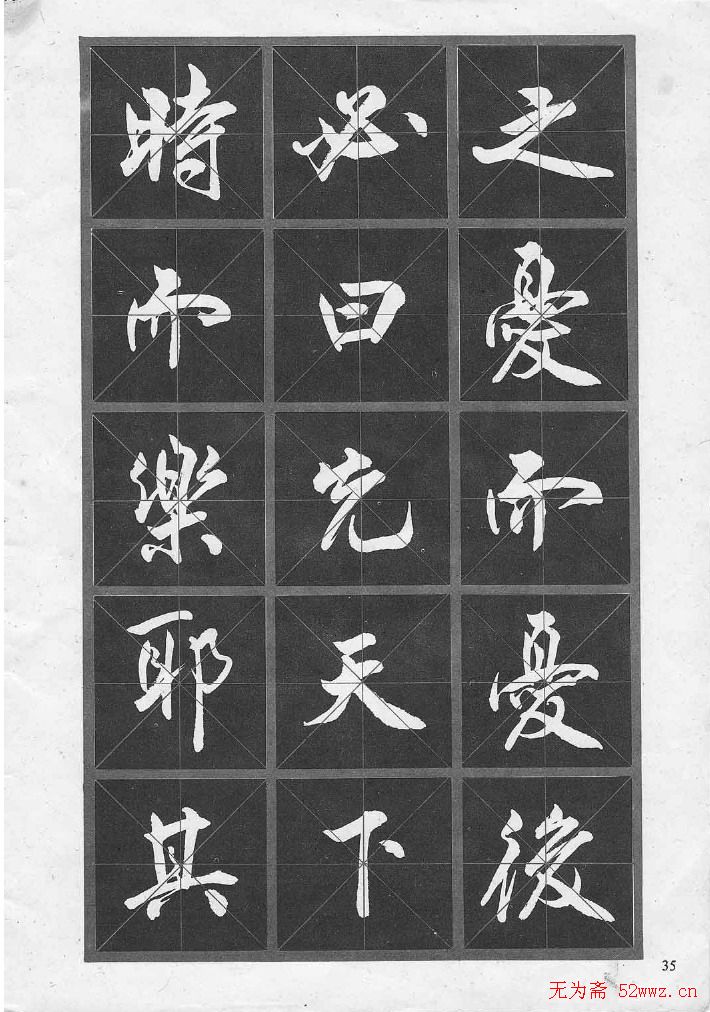 時而樂耶其
必曰先天下
之憂而憂後
35
无为斋 52wwz.cn